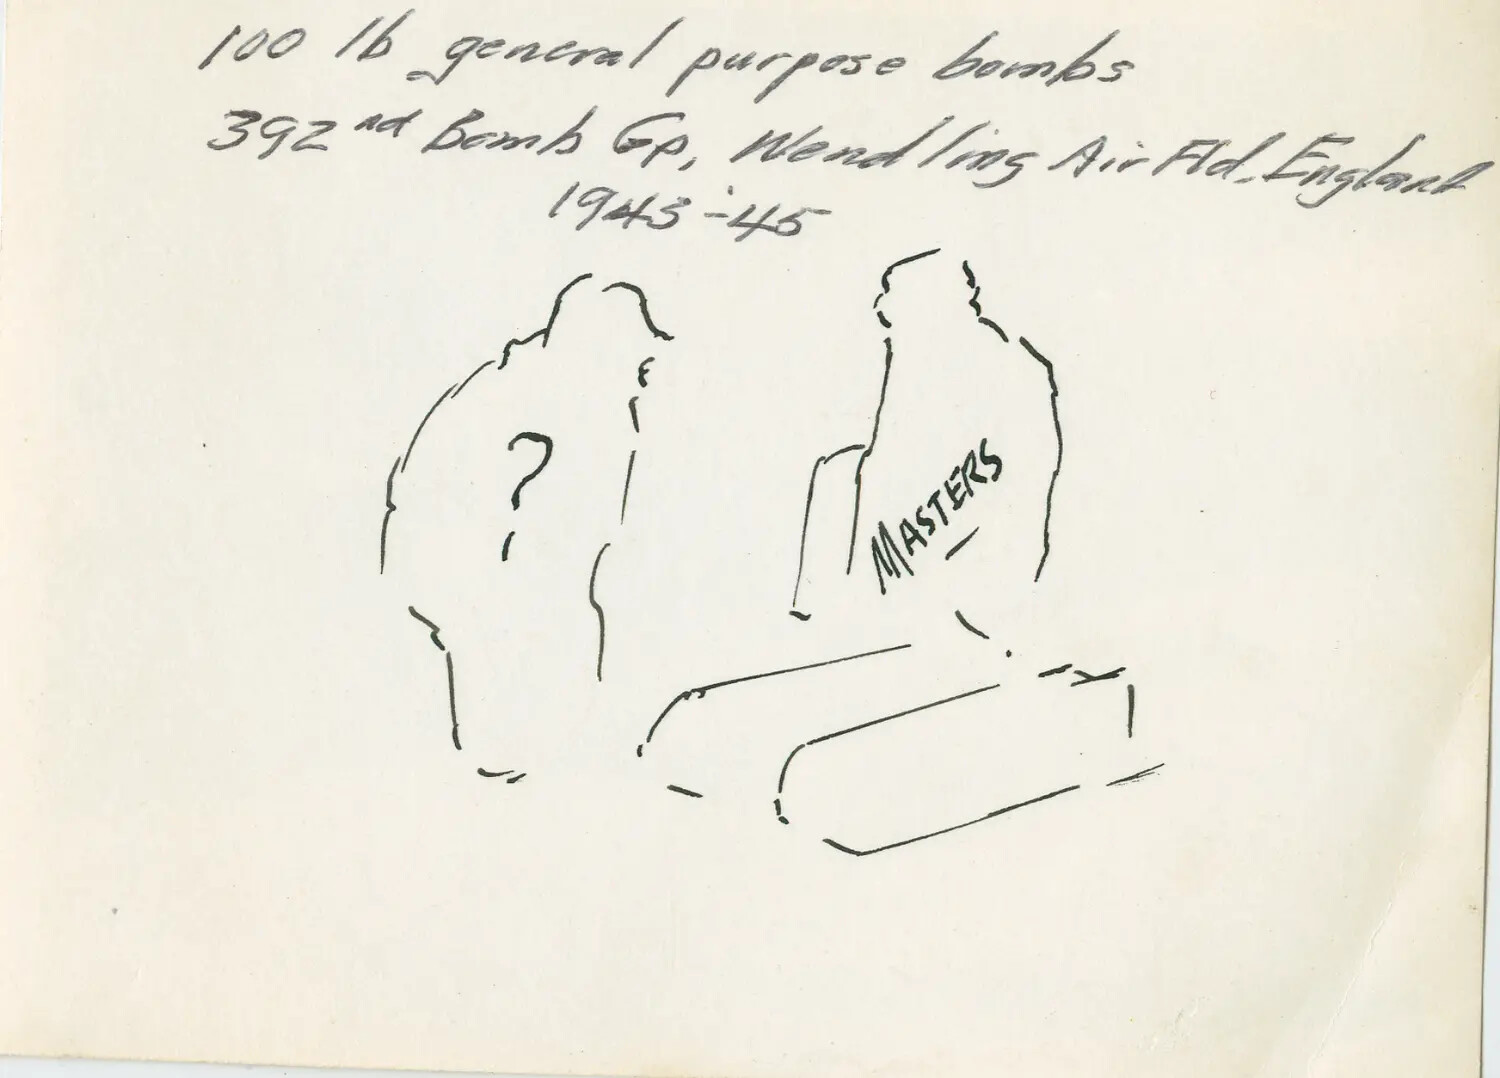 100 lb general purpose bombs
392nd Bomb Gp, Wendling Air Fld. England
1943-45
?
MASTERS